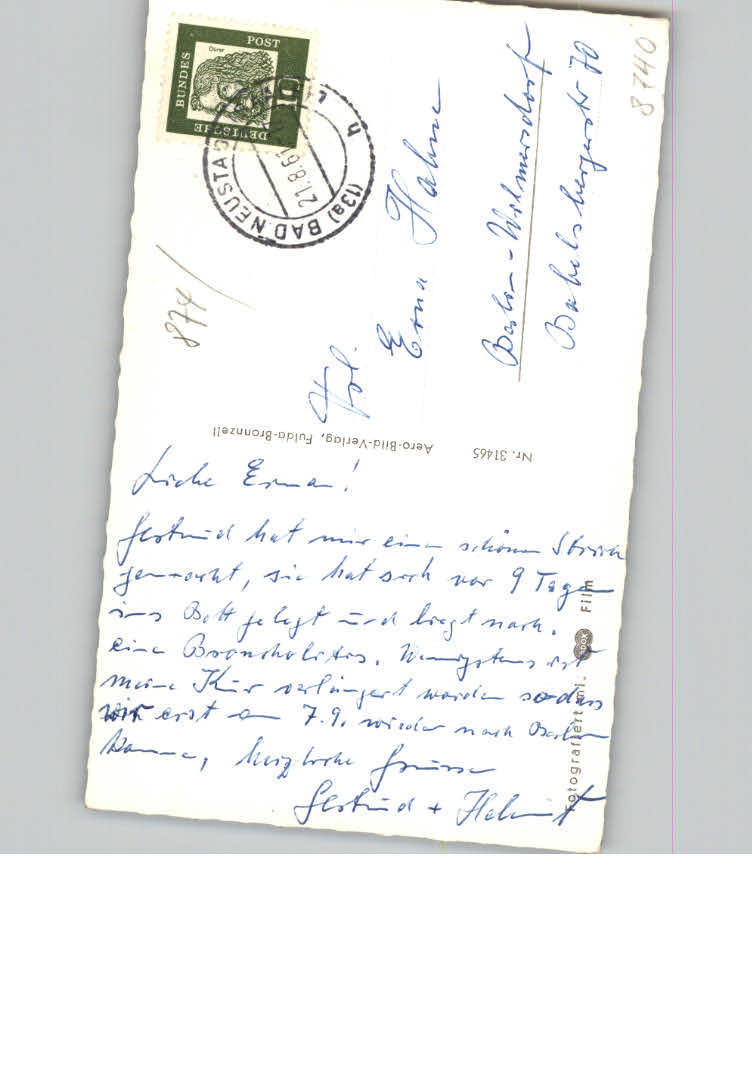 Liebe Erna!
Gertrud hat mir einen schönen Streich
gemacht, sie hat sich vor 9 Tagen
ins Bett gelegt und liegt noch.
eine Broncholitis. Wenigstens ist
meine Kur verlängert worden sodass
wir erst am 7.9. wieder nach Berlin
komme, herzliche Grüsse
Gertrud + Helmut
Frl.
Erna Hahne
Berlin-Wilmersdorf
Babelsbergerstr 70
DEUTSCHE
BUNDES
POST
Dürer
10
(13a) BAD NEUSTADT
21.8.61
h
874/
8740
Aero-Bild-Verlag, Fulda-Bronnzell
Nr. 31465
Fotografiert mi. adox Film